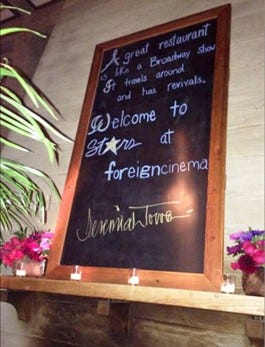 A great restaurant
is like a Broadway show
It travels around
and has revivals.
Welcome to
Stars at
foreigncinema
Jeremiah Tower